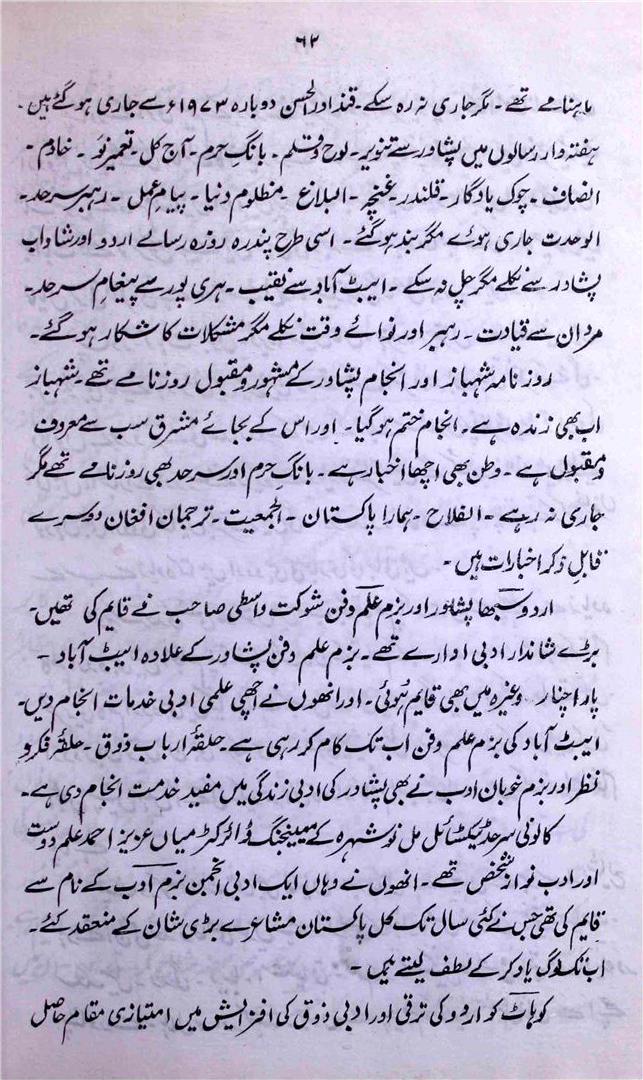 ۶۲
ماہنامے تھے ۔ مگر جاری نہ رہ سکے ۔ قند اور الحسن دوبارہ ۱۹۷۳ء سے جاری ہو گئے ہیں ۔
ہفتہ وار رسالوں میں پشاور سے تنویر ۔ لوح و قلم ۔ بانگ حرم ۔ آج کل ۔ تعمیر نو ۔ خادم ۔
انصاف ۔ چوک یادگار ۔ قلندر ۔ غنچہ ۔ البلاغ ۔ مظلوم دنیا ۔ پیام عمل ۔ رہبر سرحد ۔
الوحدت جاری ہوئے مگر بند ہو گئے ۔ اسی طرح پندرہ روزہ رسالے اردو اور شاداب
پشاور سے نکلے مگر چل نہ سکے ۔ ایبٹ آباد سے نقیب ۔ ہری پور سے پیغام سرحد ۔
مردان سے قیادت ۔ رہبر اور نوائے وقت نکلے مگر مشکلات کا شکار ہو گئے ۔
روزنامہ شہباز اور انجام پشاور کے مشہور و مقبول روزنامے تھے ۔ شہباز
اب بھی زندہ ہے ۔ انجام ختم ہو گیا ۔ اور اس کے بجائے مشرق سب سے معروف
و مقبول ہے ۔ وطن بھی اچھا اخبار ہے ۔ بانگ حرم اور سرحد بھی روزنامے تھے مگر
جاری نہ رہے ۔ الفلاح ۔ ہمارا پاکستان ۔ الجمعیت ۔ ترجمان افغان دوسرے
قابل ذکر اخبارات ہیں ۔
اردو سبھا پشاور اور بزم علم و فن شوکت واسطی صاحب نے قایم کی تھیں ۔
بڑے شاندار ادبی ادارے تھے ۔ بزم علم و فن پشاور کے علاوہ ایبٹ آباد ۔
پارا چنار وغیرہ میں بھی قایم ہوئی ۔ اور انھوں نے اچھی علمی ادبی خدمات انجام دیں ۔
ایبٹ آباد کی بزم علم و فن اب تک کام کر رہی ہے ۔ حلقۂ ارباب ذوق ۔ حلقۂ فکر و
نظر اور بزم خوبان ادب نے بھی پشاور کی ادبی زندگی میں مفید خدمت انجام دی ہے ۔
کالونی سرحد ٹیکسٹائل مل نوشہرہ کے مینجنگ ڈائرکٹر میاں عزیز احمد علم دوست
اور ادب نواز شخص تھے ۔ انھوں نے وہاں ایک ادبی انجمن بزم ادب کے نام سے
قایم کی تھی جس نے کئی سال تک کل پاکستان مشاعرے بڑی شان کے منعقد کئے ۔
اب تک لوگ یاد کر کے لطف لیتے ہیں ۔
کوہاٹ کو اردو کی ترقی اور ادبی ذوق کی افزایش میں امتیازی مقام حاصل